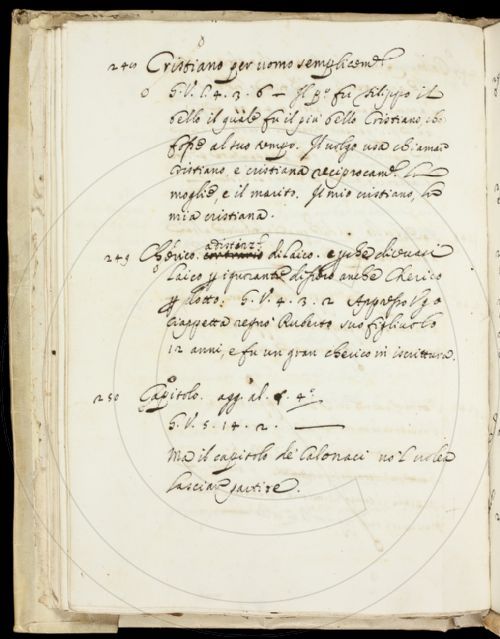 Cristiano per uomo semplicem.te
G. V. l. 4. 3. 6 — Il p.o fu Filippo il
bello il quale fu il più bello Cristiano che
fosse al suo tempo. Il volgo usa chiamar
cristiano, e cristiana reciprocam.te la
moglie, e il marito. Il mio cristiano, la
mia cristiana.
249 Chérico. di laico. e perche dicevasi
laico p ignorante dissero anche Cherico
p dotto. G. V. 4. 3. 2 Appresso Ugo
Ciappetta regnò Ruberto suo figliuolo
12 anni, e fu un gran cherico in iscrittura.
250 Capitolo. agg. al §. 4.o
G. V. 5. 14. 2. —
Ma il capitolo de' Calonaci no'l volea
lasciar partire.